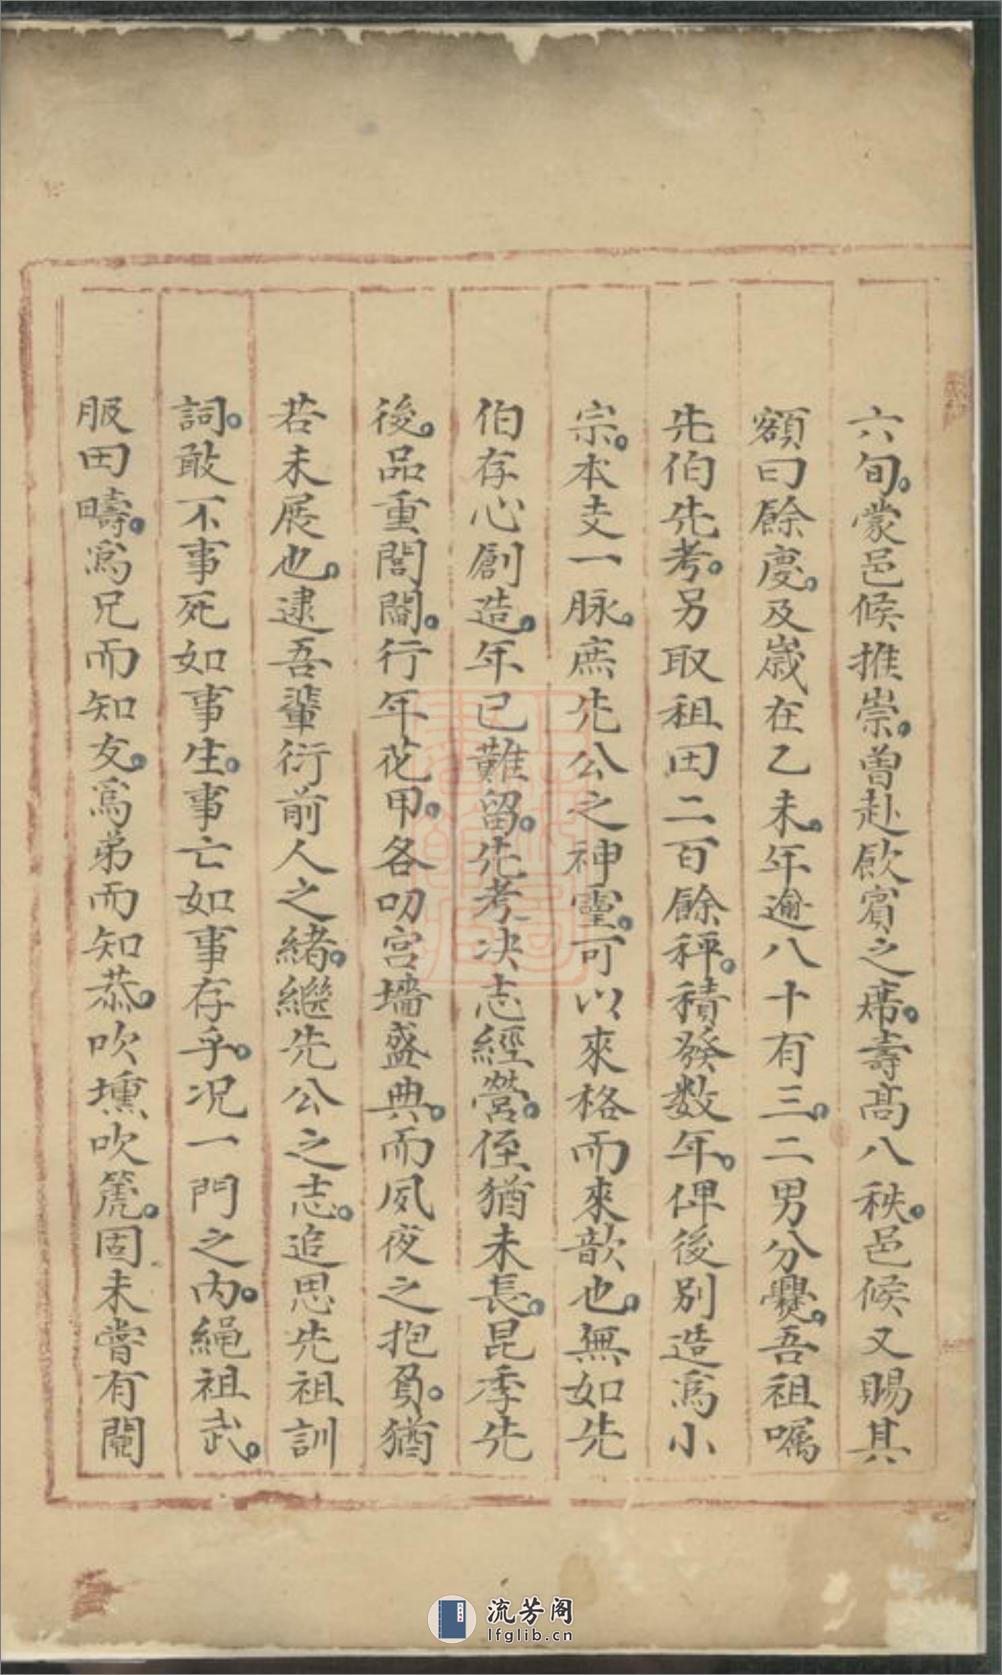 六旬。蒙邑候推崇。曽赴飲賔之席。壽髙八秩。邑候又賜其
額曰餘慶。及嵗在乙未。年逾八十有三。二男分爨。吾祖嘱
先伯先考。另取祖田二百餘秤。積發数年。俾後别造爲小
宗。本支一脉。庶先公之神靈。可以來格而來歆也。無如先
伯存心創造。年已難留。先考决志經營。侄猶未長。昆季先
後。品重閭閻。行年花甲。各叨宫墻盛典。而夙夜之抱負。猶
若未展也。逮吾輩衍前人之緒。繼先公之志。追思先祖訓
詞。敢不事死如事生。事亡如事存乎。况一門之内。繩祖武。
服田疇。爲兄而知友。爲弟而知恭。吹壎吹箎。固未嘗有闗
流芳阁
lfglib.cn